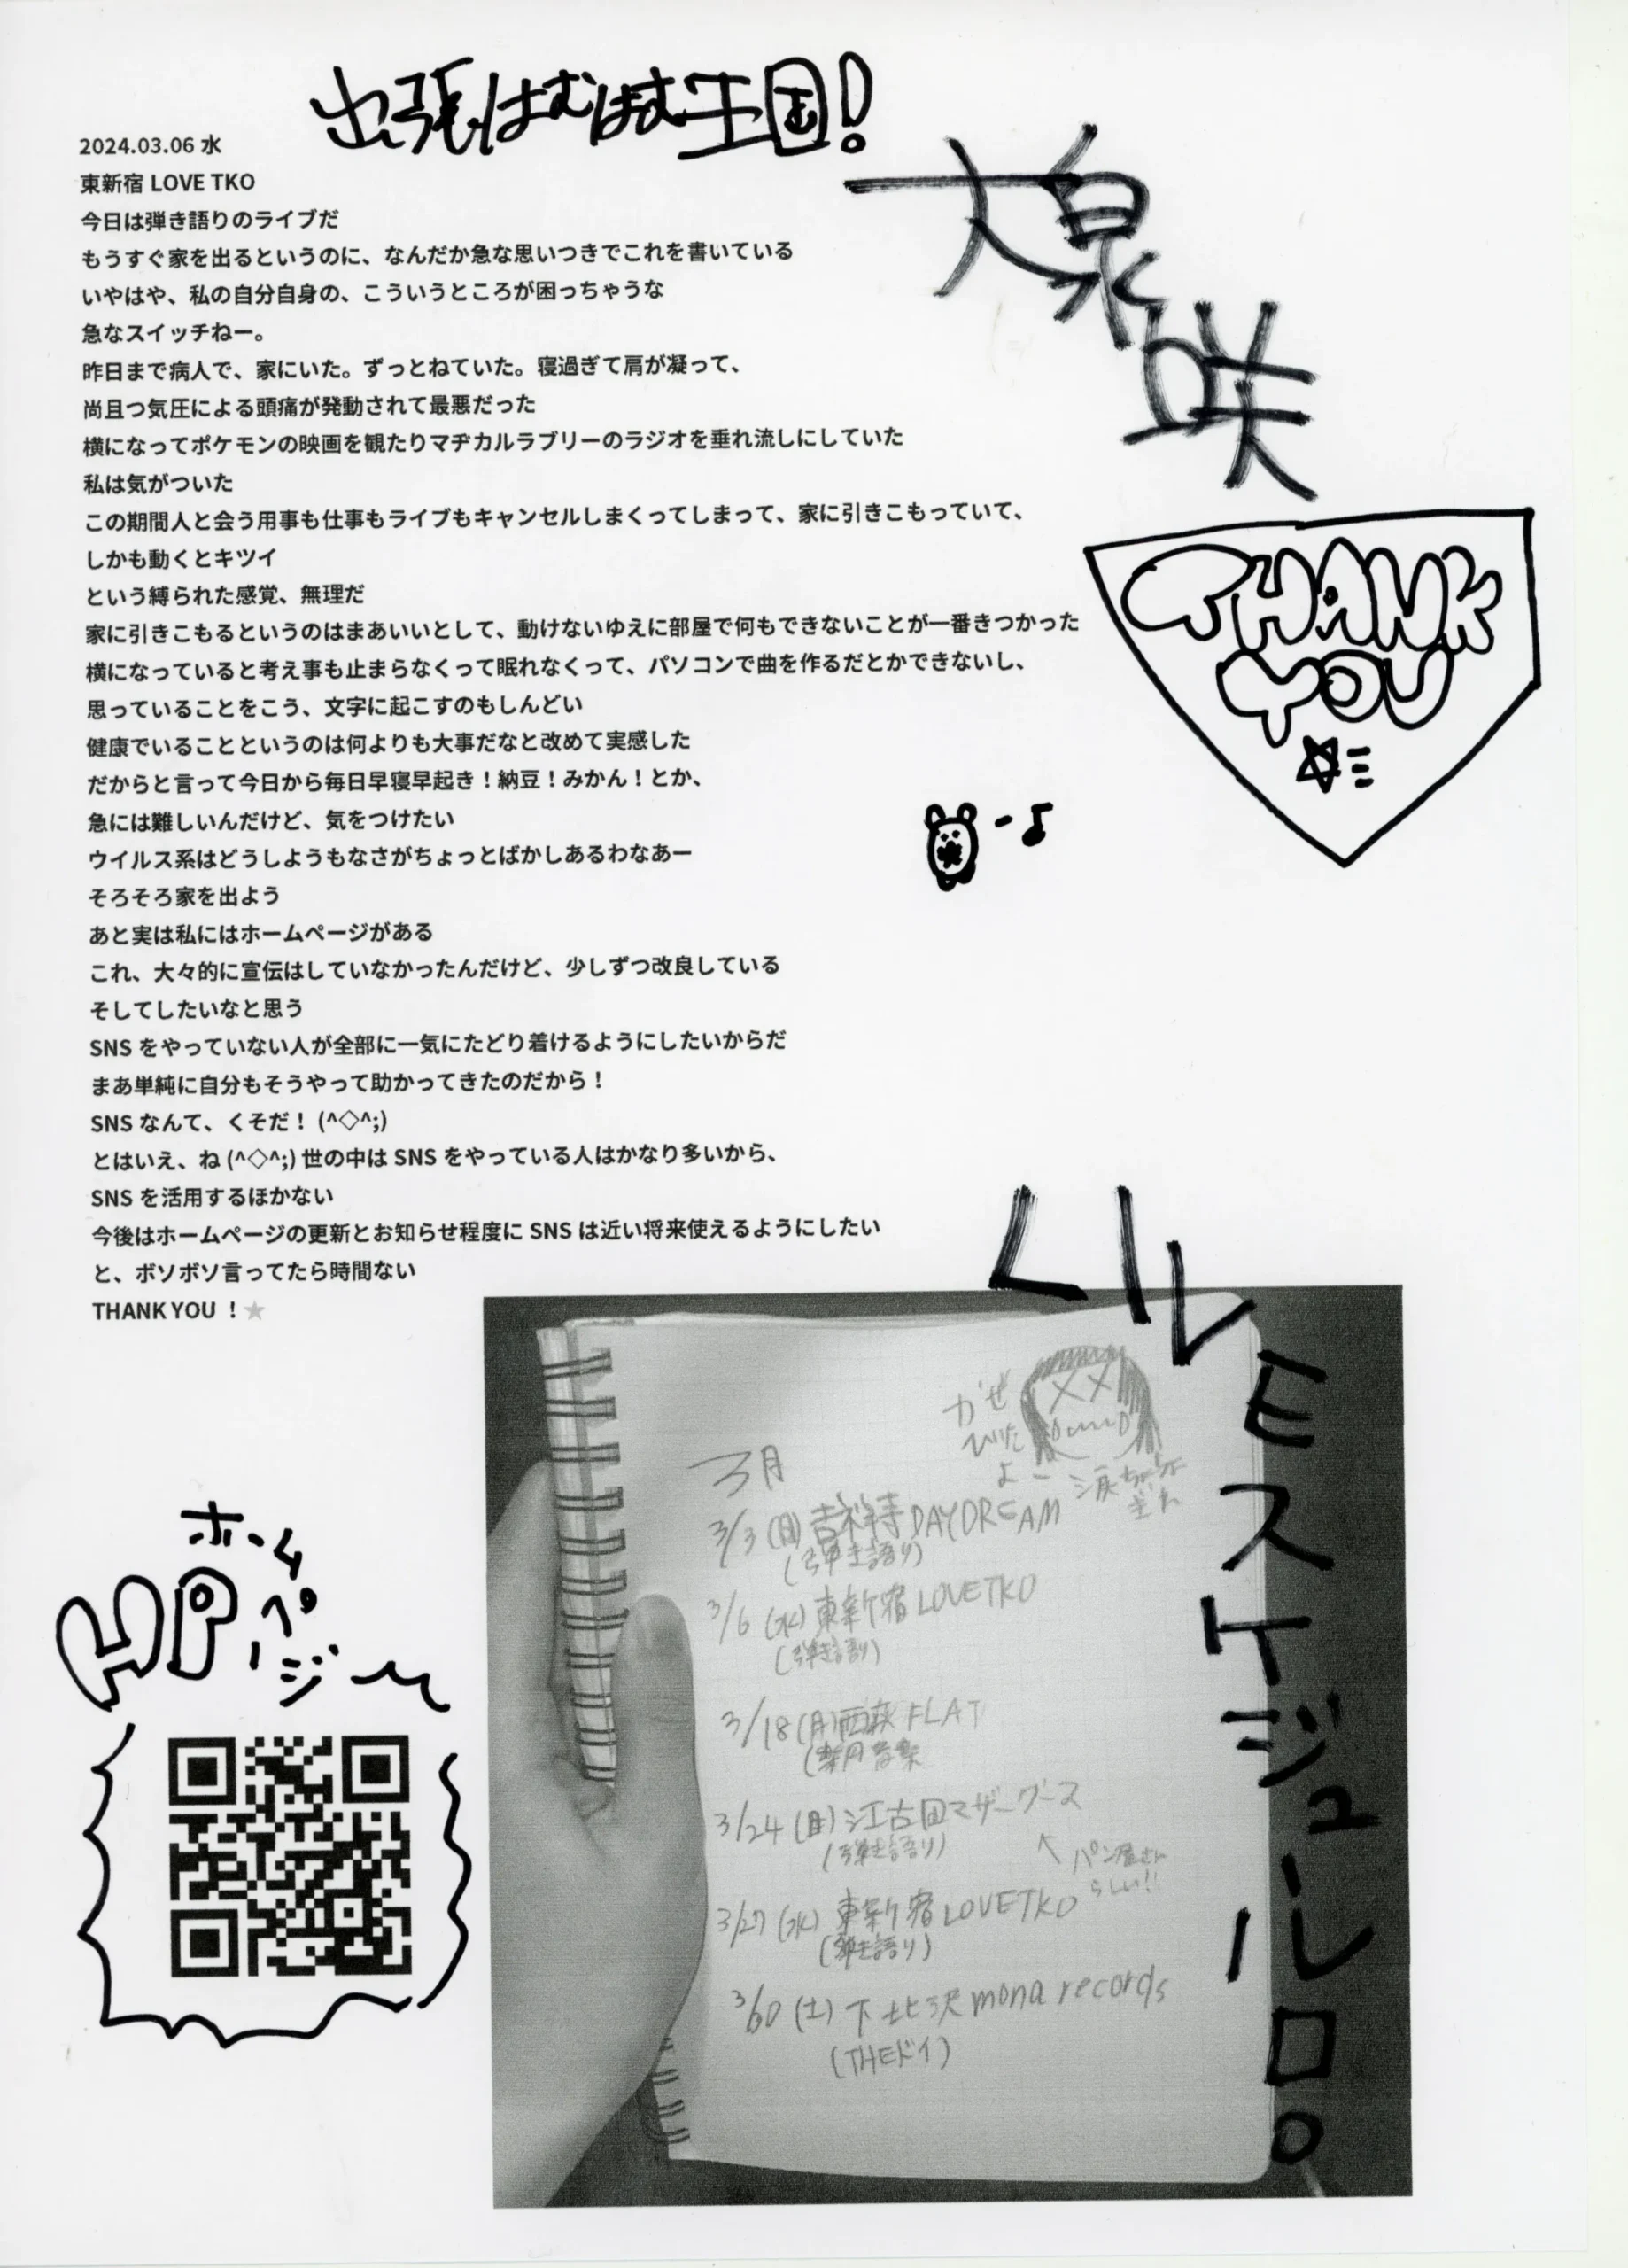 出張はむはむ王国!
大泉咲
2024.03.06 水
東新宿 LOVE TKO
今日は弾き語りのライブだ
もうすぐ家を出るというのに、なんだか急な思いつきでこれを書いている
いやはや、私の自分自身の、こういうところが困っちゃうな
急なスイッチねー。
昨日まで病人で、家にいた。ずっとねていた。寝過ぎて肩が凝って、
尚且つ気圧による頭痛が発動されて最悪だった
横になってポケモンの映画を観たりマヂカルラブリーのラジオを垂れ流しにしていた
私は気がついた
この期間人と会う用事も仕事もライブもキャンセルしまくってしまって、家に引きこもっていて、
しかも動くとキツイ
という縛られた感覚、無理だ
家に引きこもるというのはまあいいとして、動けないゆえに部屋で何もできないことが一番きつかった
横になっていると考え事も止まらなくって眠れなくって、パソコンで曲を作るだとかできないし、
思っていることをこう、文字に起こすのもしんどい
健康でいることというのは何よりも大事だなと改めて実感した
だからと言って今日から毎日早寝早起き！納豆！みかん！とか、
急には難しいんだけど、気をつけたい
ウイルス系はどうしようもなさがちょっとばかしあるわなあー
そろそろ家を出よう
あと実は私にはホームページがある
これ、大々的に宣伝はしていなかったんだけど、少しずつ改良している
そしてしたいなと思う
SNS をやっていない人が全部に一気にたどり着けるようにしたいからだ
まあ単純に自分もそうやって助かってきたのだから！
SNS なんて、くそだ！ (^◇^;)
とはいえ、ね (^◇^;) 世の中は SNS をやっている人はかなり多いから、
SNS を活用するほかない
今後はホームページの更新とお知らせ程度に SNS は近い将来使えるようにしたい
と、ボソボソ言ってたら時間ない
THANK YOU ！★
THANK
YOU
かぜ
ひいた
よー
3月
3/3 (日) 吉祥寺 DAYDREAM
(弾き語り)
3/6 (水) 東新宿 LOVETKO
(弾き語り)
3/18 (月) 西荻 FLAT
3/24 (日) 江古田マザーグース
(弾き語り)
パン屋さん
らしい!!
3/27 (水) 東新宿 LOVETKO
(弾き語り)
3/30 (土) 下北沢 mona records
(THEドイ)
スケジュール
HP
ホーム
ページ